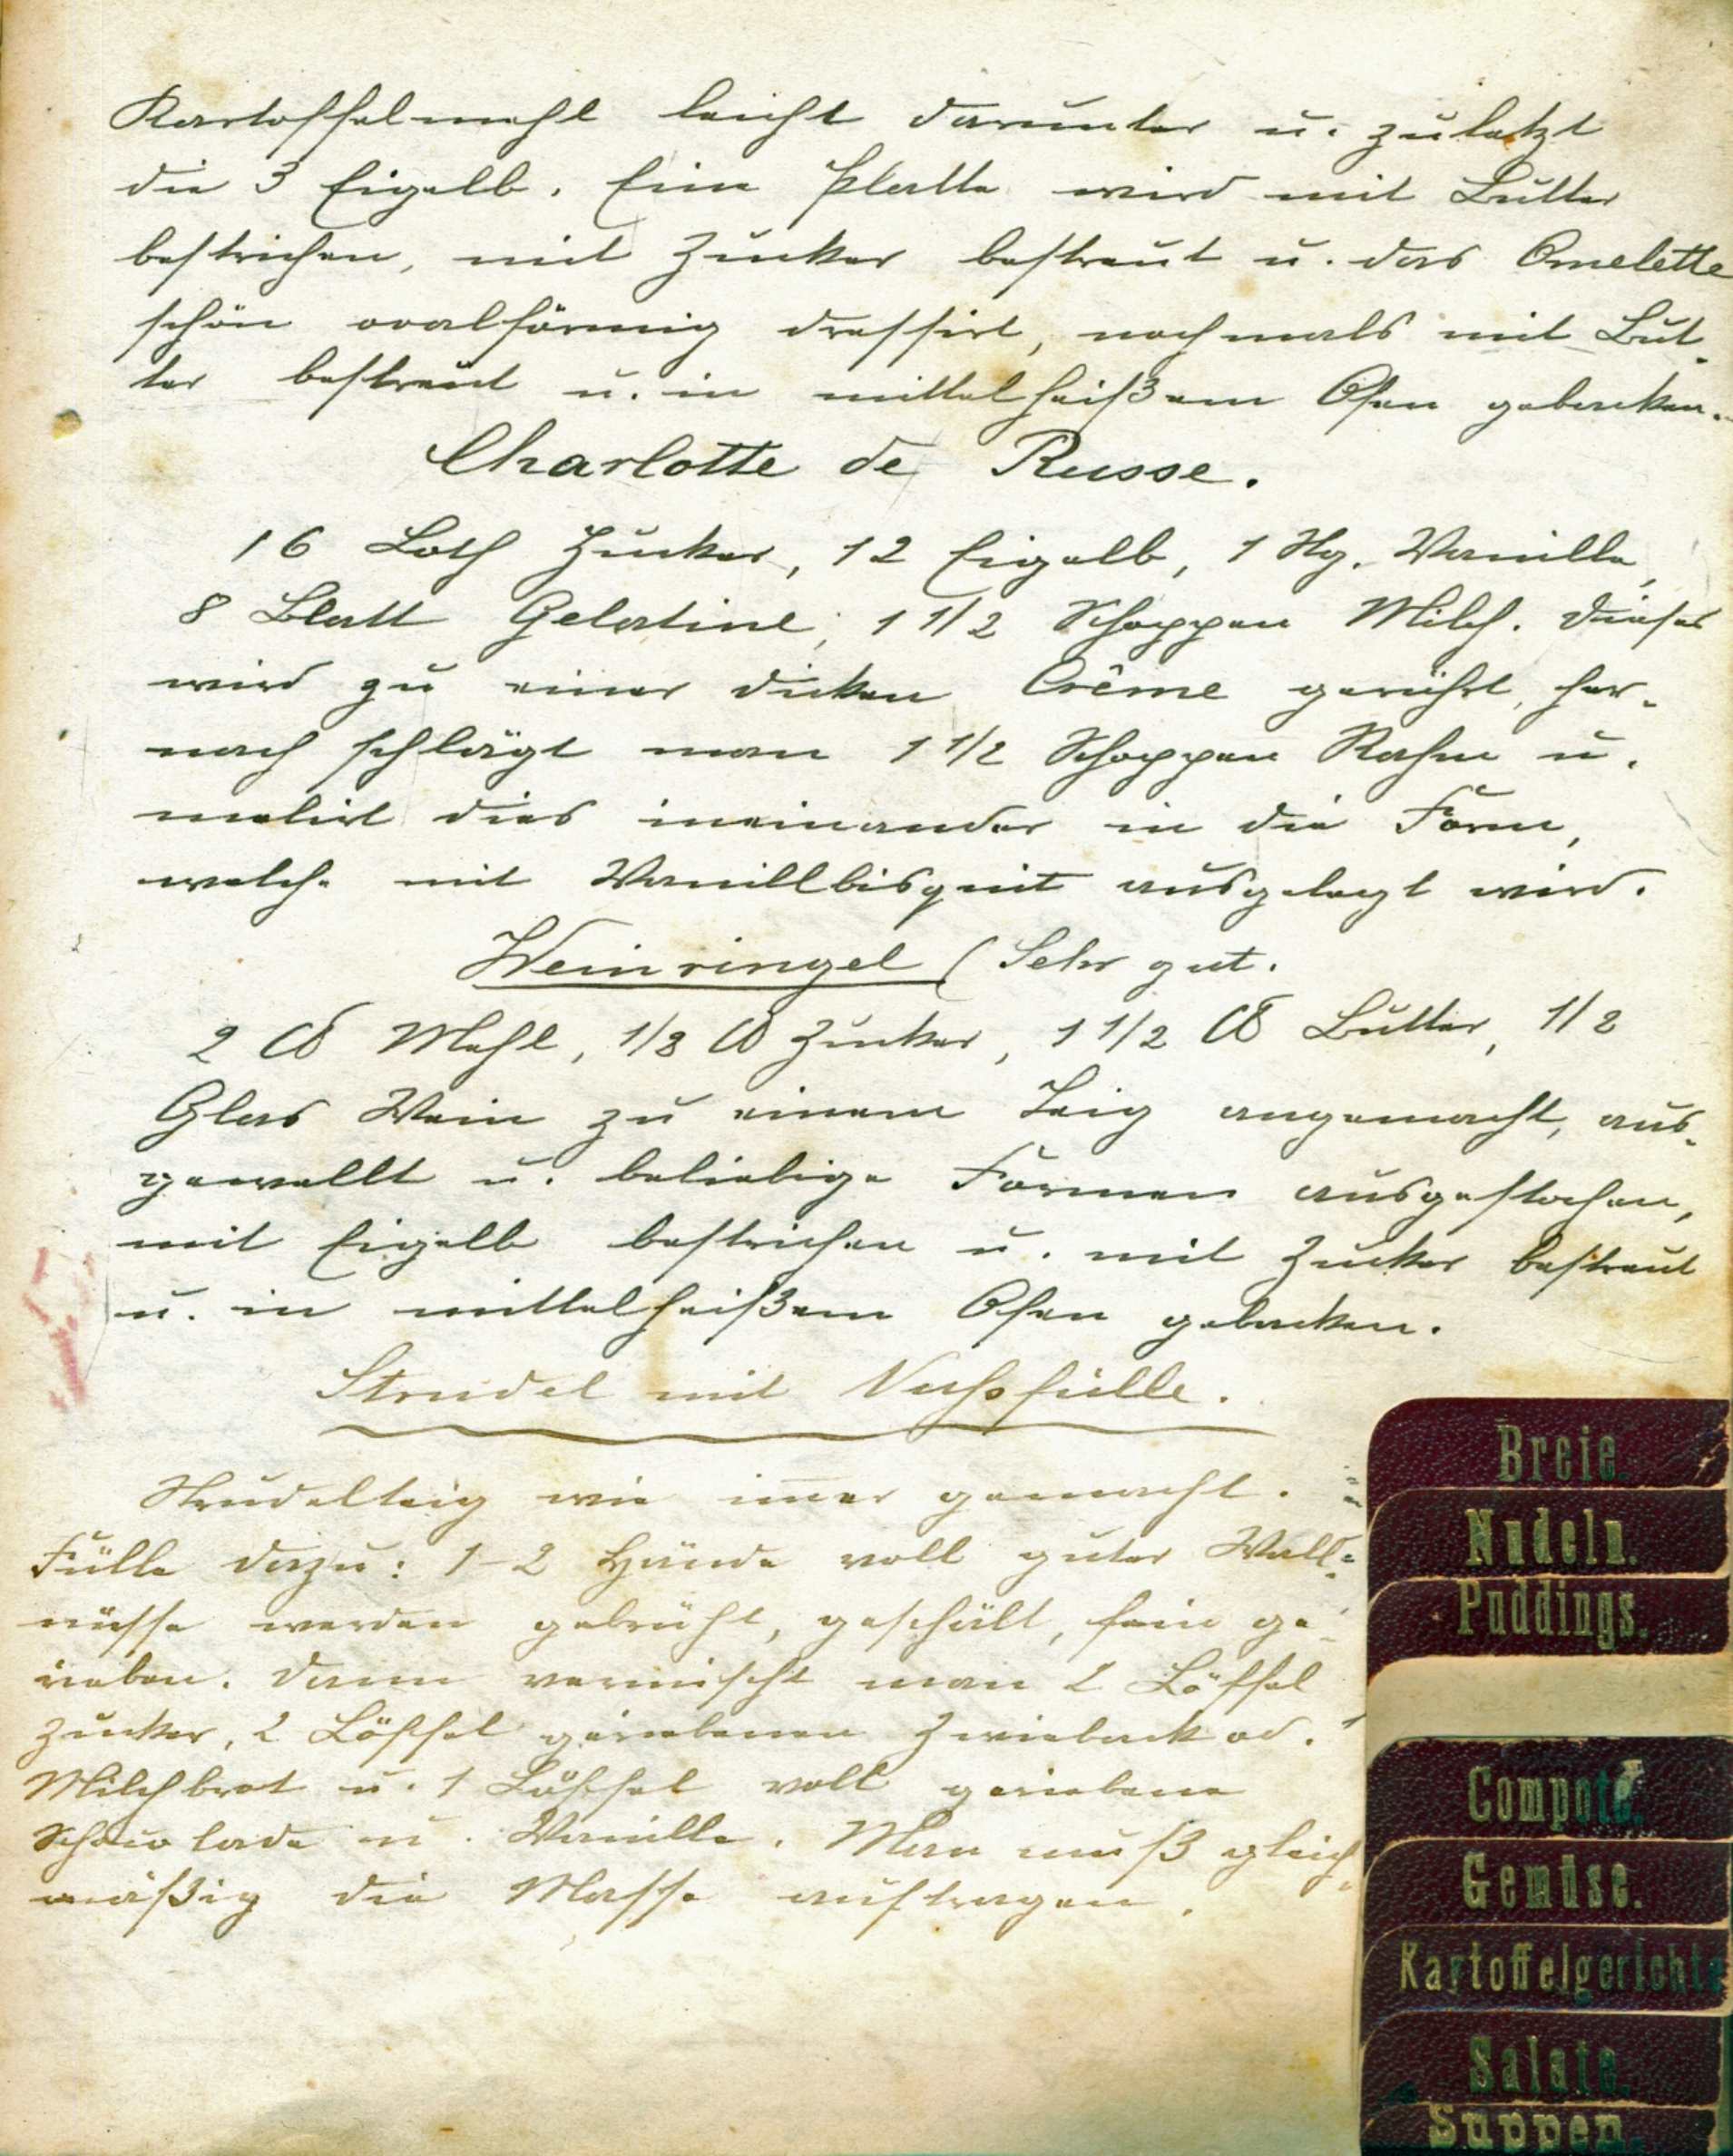 Kartoffelmehl leicht darunter u. zuletzt
die 3 Eigelb. Eine Platte wird mit Butter
bestrichen, mit Zucker bestreut u. das Omelette
schön ovalförmig dressirt, nochmals mit But-
ter bestreut u. in mittelheißem Ofen gebacken.
Charlotte de Russe.
16 Loth Zucker, 12 Eigelb, 1 Stg. Vanille,
8 Blatt Gelatine, 1 1/2 Schoppen Milch. Dieses
wird zu einer dicken Crême gerührt, her-
nach schlägt man 1 1/2 Schoppen Rahm u.
melirt dies ineinander in die Form,
welche mit Vanillbisquit ausgelegt wird.
Weinringel (Sehr gut.
2 ℔ Mehl, 1/2 ℔ Zucker, 1 1/2 ℔ Butter, 1/2
Glas Wein zu einem Teig angemacht, aus-
gewellt u. beliebige Formen ausgestochen,
mit Eigelb bestrichen u. mit Zucker bestreut
u. in mittelheißem Ofen gebacken.
Strudel mit Nussfülle.
Strudelteig wie im̅er gemacht.
Fülle dazu: 1-2 Hände voll guter Wall-
nüsse werden gebrüht, geschält, fein ge-
rieben. Dann vermischt man 2 Löffel
Zucker, 2 Löffel geriebenen Zwieback od.
Milchbrot u. 1 Löffel voll geriebene
Schocolade u. Vanille. Man muß gleich-
mäßig die Masse auftragen.
Breie.
Nudeln.
Puddings.
Compote.
Gemüse.
Kartoffelgerichte
Salate.
Suppen.